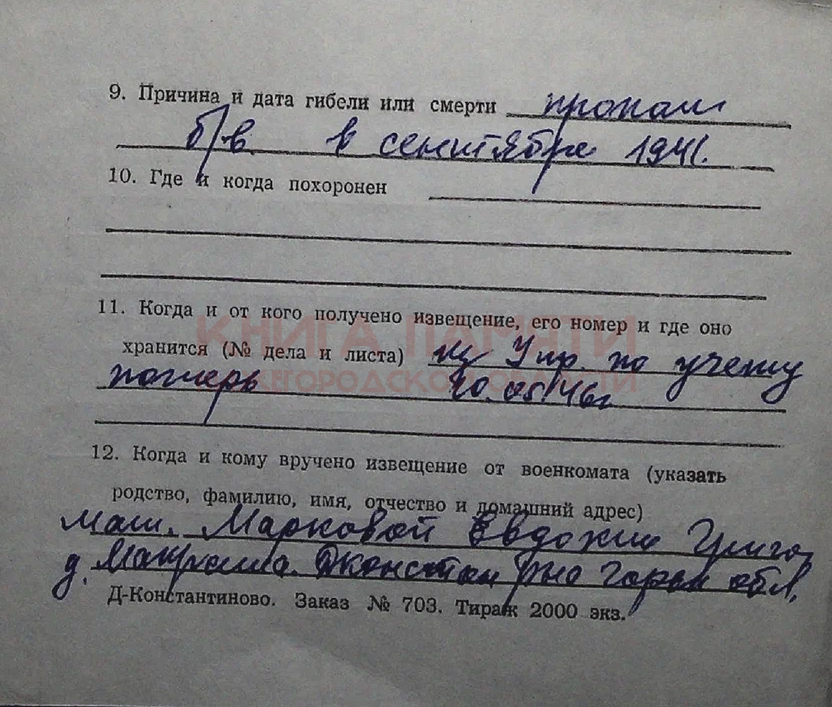 9. Причина и дата гибели или смерти пропал
б/в. в сентябре 1941.
10. Где и когда похоронен
11. Когда и от кого получено извещение, его номер и где оно
КНИГА ПАМЯТИ
хранится (№ дела и листа) из Упр. по учету
НИЖЕГОРОДСКОЙ ОБЛАСТИ
потерь 20.05.46г
12. Когда и кому вручено извещение от военкомата (указать
родство, фамилию, имя, отчество и домашний адрес)
мат. Марковой Евдокии Григо
д. Макраша Дконстан рно Горьк обл.
Д-Константиново. Заказ № 703. Тираж 2000 экз.